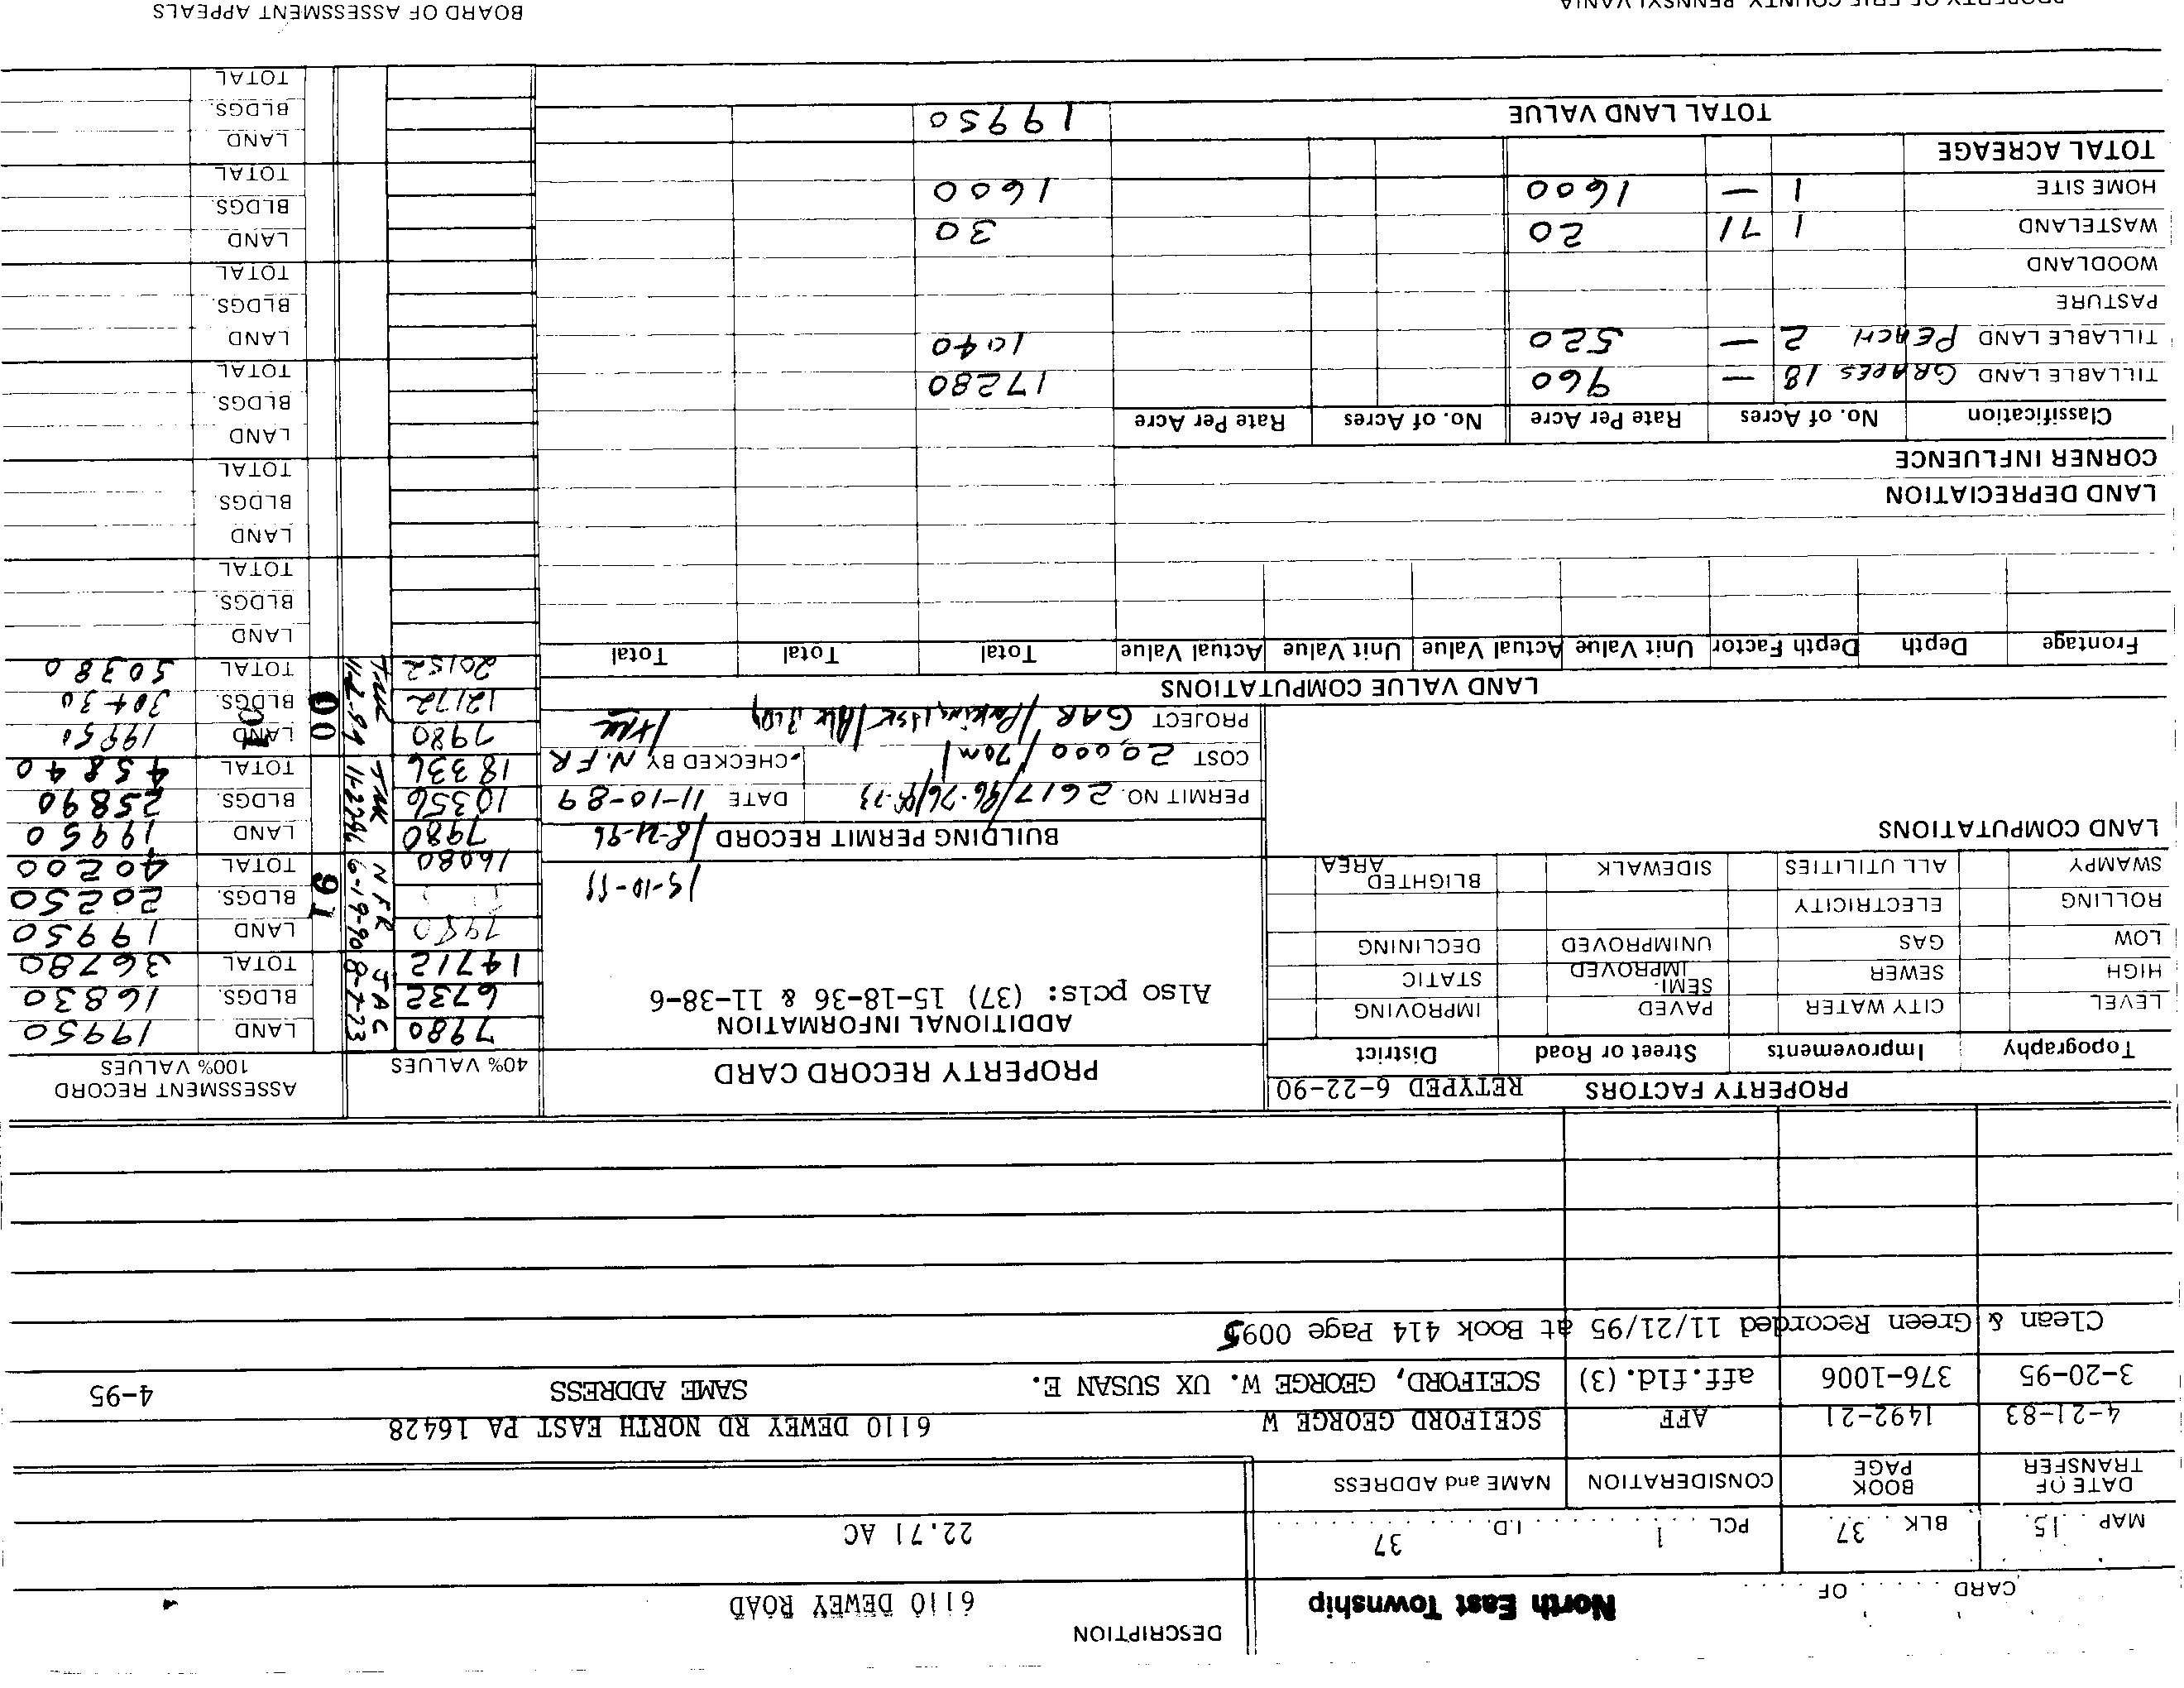 CARD OF
North East Township
DESCRIPTION
6110 DEWEY ROAD
MAP 15. BLK 37. PCL 1 I.D. 37
22.71 AC
DATE OF TRANSFER BOOK PAGE CONSIDERATION NAME and ADDRESS
4-21-83 1492-21 AFF SCEIFORD GEORGE W 6110 DEWEY RD NORTH EAST PA 16428
3-20-95 376-1006 aff.fld.(3) SCEIFORD, GEORGE W. UX SUSAN E. SAME ADDRESS 4-95
Clean & Green Recorded 11/21/95 at Book 414 Page 0095
PROPERTY FACTORS RETYPED 6-22-90
Topography Improvements Street or Road District
LEVEL CITY WATER PAVED IMPROVING
HIGH SEWER SEMI-IMPROVED STATIC
LOW GAS UNIMPROVED DECLINING
ROLLING ELECTRICITY
SWAMPY ALL UTILITIES SIDEWALK BLIGHTED AREA
LAND COMPUTATIONS
PROPERTY RECORD CARD
ADDITIONAL INFORMATION
Also pcls: (37) 15-18-36 & 11-38-6
BUILDING PERMIT RECORD 8-21-96
PERMIT NO. 2617/96-76/ DATE 11-10-89
COST 20,000/70m CHECKED BY N.F.R
PROJECT GAR/
40% VALUES ASSESSMENT RECORD 100% VALUES
7980 JAC 8-7-73 LAND 19950
6732 BLDGS. 16830
14712 TOTAL 36780
7980 NFR 6-19-90 91 LAND 19950
BLDGS. 20250
16080 TOTAL 40200
7980 TMK LAND 19950
10356 BLDGS. 25890
18336 TOTAL 45840
7980 00 LAND 19950
12172 BLDGS. 30430
20152 TOTAL 50380
LAND
BLDGS.
TOTAL
LAND
BLDGS.
TOTAL
LAND
BLDGS.
TOTAL
LAND
BLDGS.
TOTAL
LAND
BLDGS.
TOTAL
LAND
BLDGS.
TOTAL
LAND VALUE COMPUTATIONS
Frontage Depth Depth Factor Unit Value Actual Value Unit Value Actual Value Total Total Total
LAND DEPRECIATION
CORNER INFLUENCE
Classification No. of Acres Rate Per Acre No. of Acres Rate Per Acre
TILLABLE LAND GRAPES 18 — 960 17280
TILLABLE LAND PEACH 2 — 520 1040
PASTURE
WOODLAND
WASTELAND 1 71 20 30
HOME SITE 1 — 1600 1600
TOTAL ACREAGE
TOTAL LAND VALUE 19950
PROPERTY OF ERIE COUNTY, PENNSYLVANIA BOARD OF ASSESSMENT APPEALS